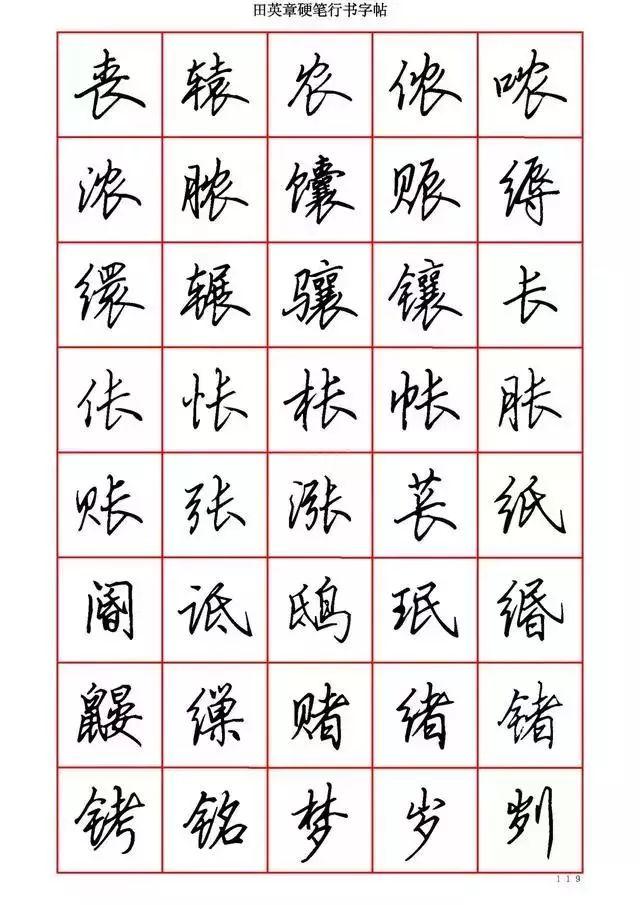 田英章硬笔行书字帖
丧辕农侬哝
浓脓馕赈缛
缳辗骧镶长
伥怅枨帐胀
账张涨苌纸
阍诋鸱珉缗
鼹缫赌绪锗
铐铭梦岁刿
119